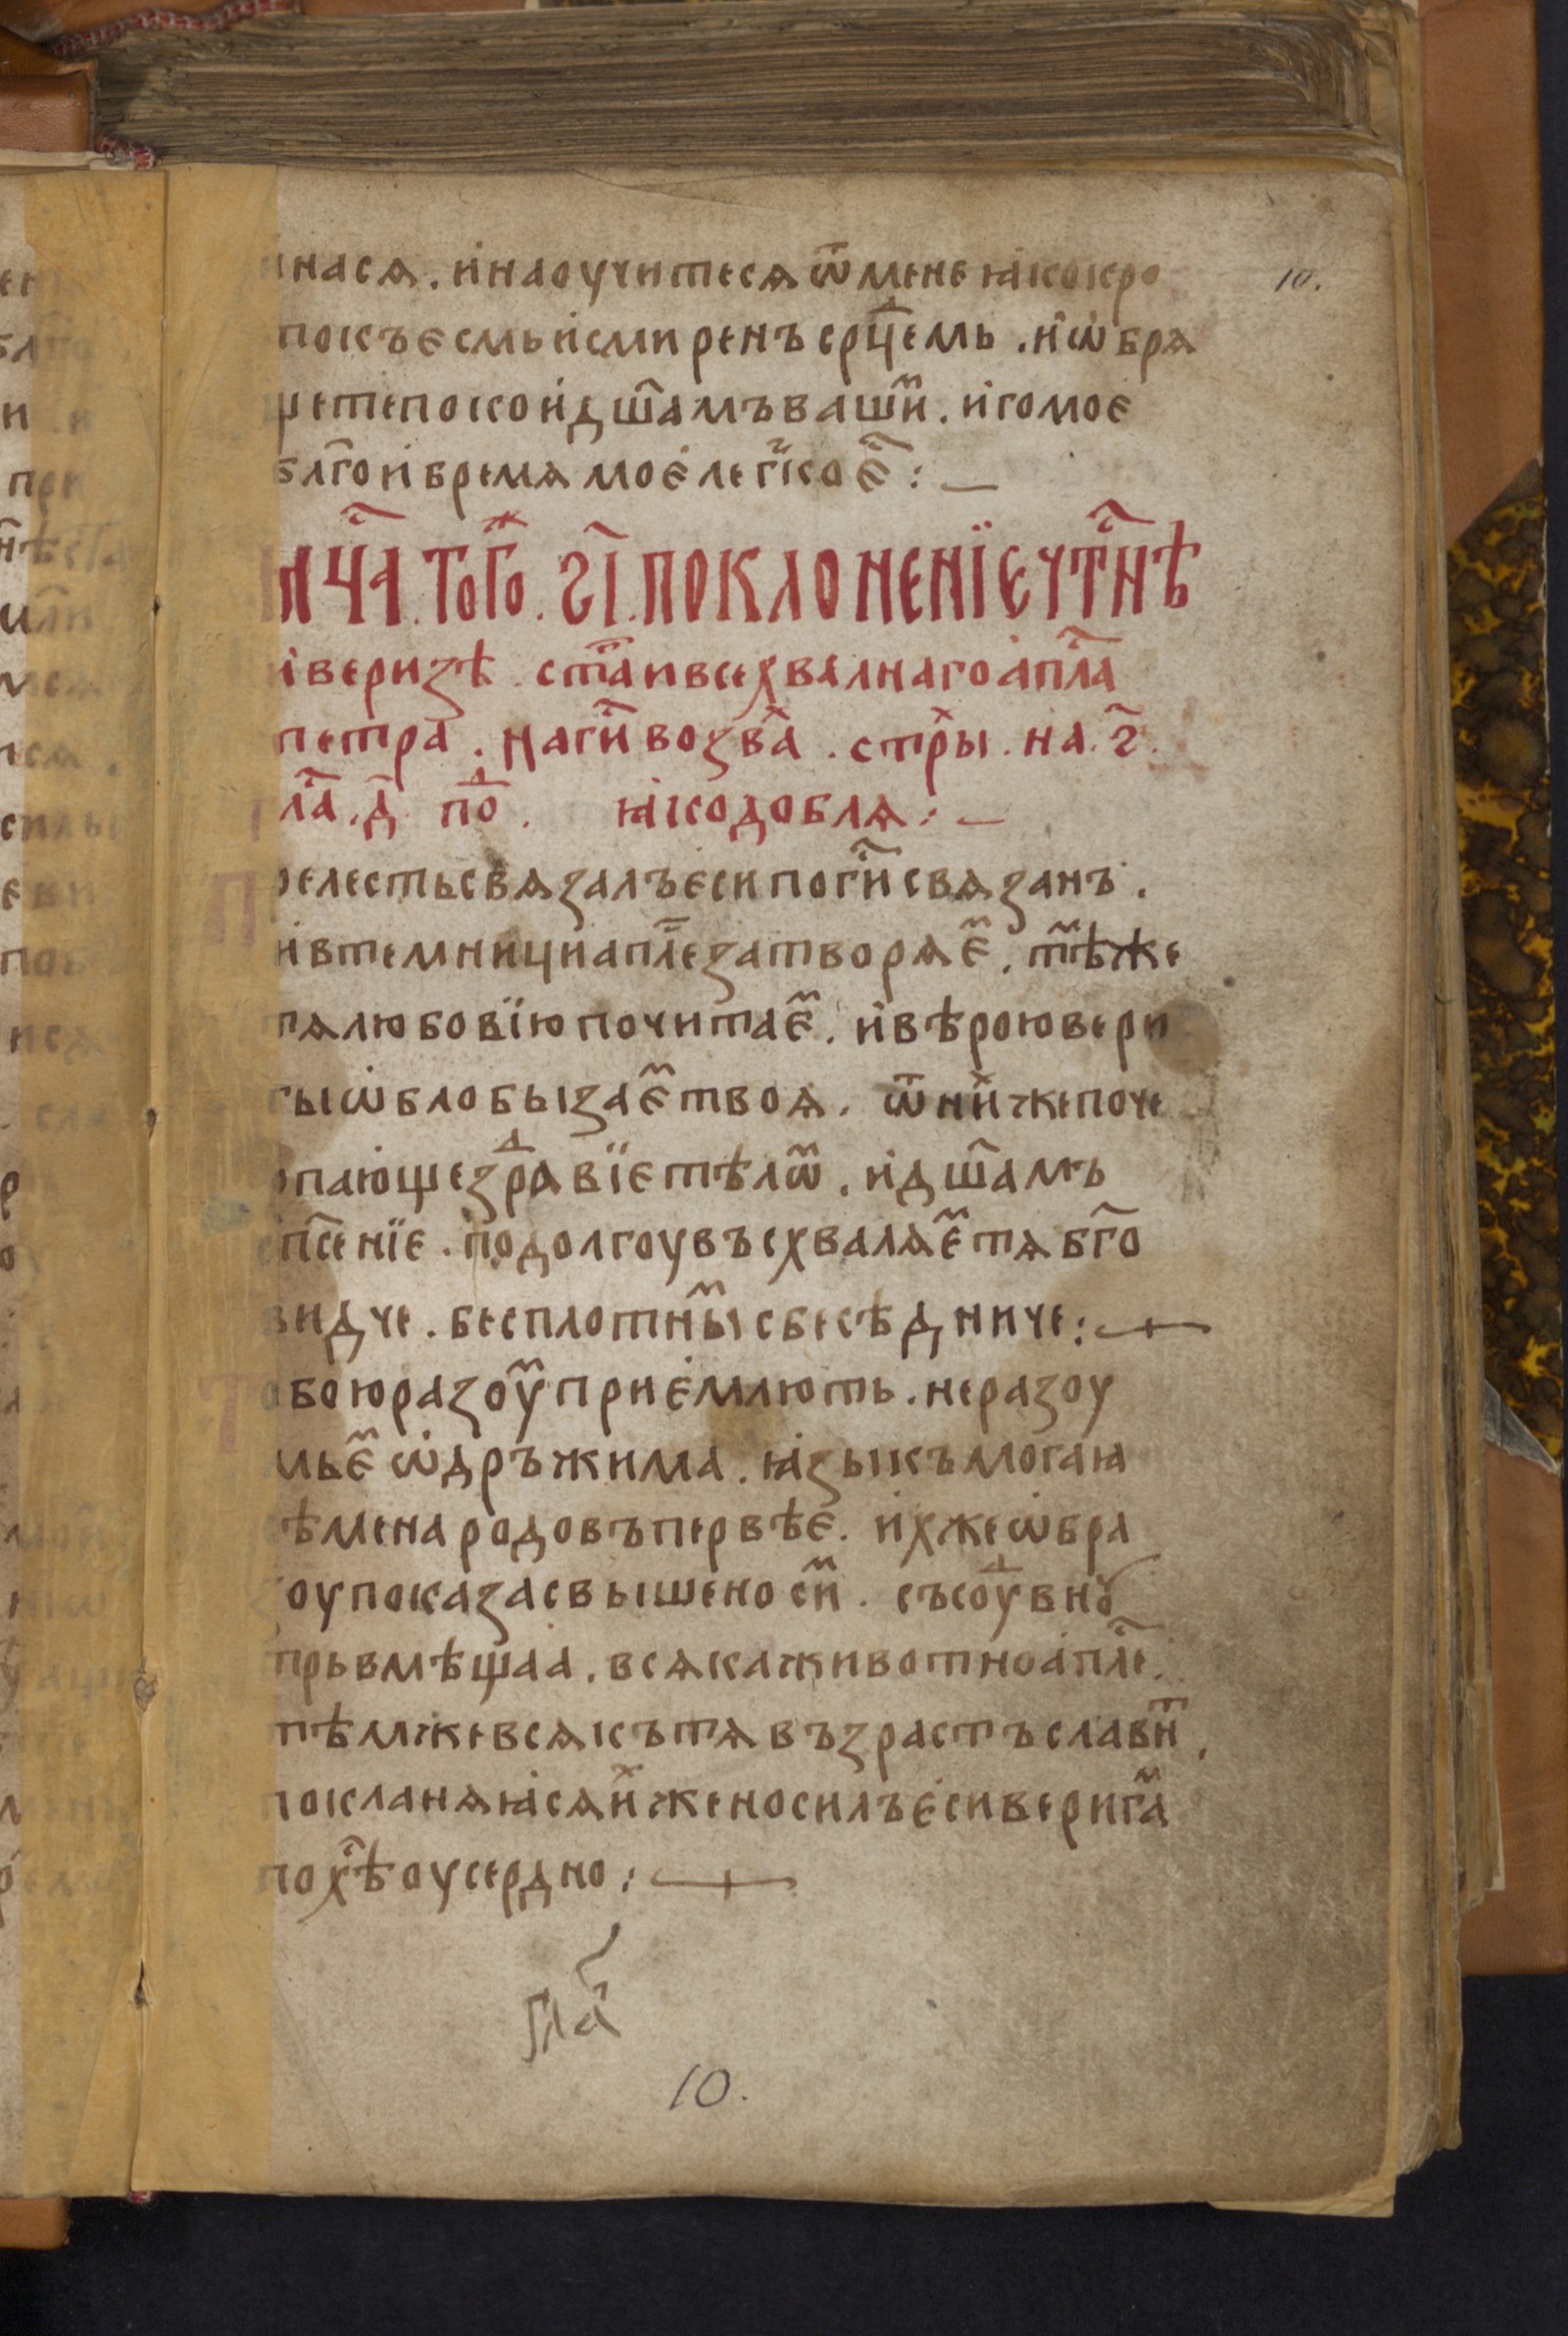 инася. и҆наоучитеся ѿмене ꙗ҆кокро
покъєсмьи҆смиренъ срⷣцемь . и҆ѡ҆бря
щетепокои дш҃амъвашиⷨ. и҆гомоє
бл҃гои҆бремѧмоє҆легⸯкоєⷭ҇ : —
и чⷭ҇а. тогоⷤ. ѕ҃і. поклоненїе чтⷭ҇нѣ
и҆веризѣ. ст҃аивсехвалнагоа҆пⷭ҇ла
петра. нагⷭ҇ивозваⷯ. стрⷯы. на. ѕ҃.
лⷭ҇а. д҃ поⷣ. ꙗ҆кодобля : —
Прелестьсвязалъєси погⷭ҇исвязанъ.
и҆втемницианⷭ҇лезатворяєⷨ. тⷨѣже
тялюбовїюпочитаєⷨ. и҆вѣроювери
гыѡ҆блобызаєⷨтвоя. ѿниⷯжепоче
рпающездⷣравїетѣлѡⷨ. и҆дш҃амъ
сп҃сенїе. подолгоувъсхваляєⷨтябг҃о
видче. бесплотныⷨсбесѣдниче : —+—
Тобоюразоуⷨприє҆млють. неразоу
мьєⷨѡ҆дръжима. ꙗ҆зыкъмногаꙗ
сѣменародовъпервѣє. и҆хжеѡ҆бра
зоупоказасвышеносиⷨ. съсоуⷣвнꙋ
трьвмѣщаа. всякаживотноа҆пⷭ҇ле.
тѣмжевсякътявъзрастъславиⷮ,
покланяꙗ҆сяиⷯженосилъє҆сиверигаⷨ
похⷭ҇ѣоусердно : —+—
глаⷭ҇
10.
10.